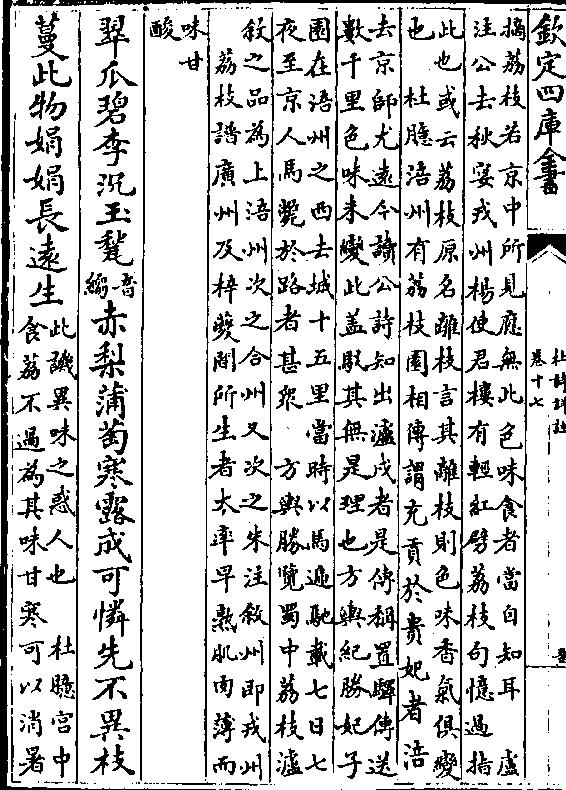 欽定四庫全書
杜詩詳註
卷十七
摘荔枝若京中所見應無此色味食者當自知耳　盧
注公去秋宴戎州楊使君樓有輕紅劈荔枝句憶過指
此也或云荔枝原名離枝言其離枝則色味香氣俱變
也　杜臆涪州有荔枝園相傳謂充貢於貴妃者涪
去京師尤遠今讀公詩知出瀘戎者是俗稱置驛傳送
數千里色味未變此蓋駁其無是理也方輿紀勝妃子
園在涪州之西去城十五里當時以馬遞馳載七日七
夜至京人馬斃於路者甚衆　方輿勝覽蜀中荔枝瀘
敘之品為上涪州次之合州又次之朱注敘州即戎州
荔枝譜廣州及梓夔間所生者大率早熟肌肉薄而
味甘
酸
翠瓜碧李沉玉甃音縐赤梨蒲萄寒露成可憐先不異枝
蔓此物娟娟長遠生
此譏異味之惑人也　杜臆宮中
食荔不過為其味甘寒可以消暑